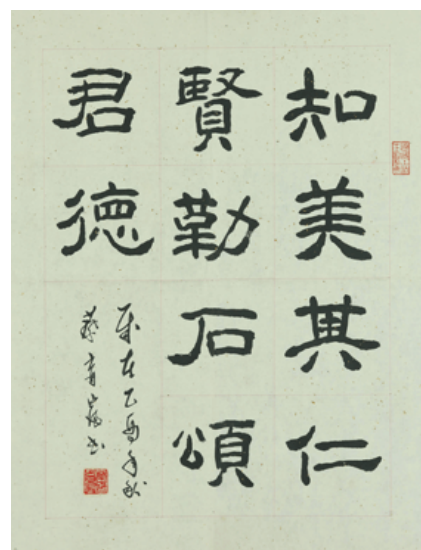 知美其仁
賢勒石頌
君德
歲在乙酉年秋
蔡書